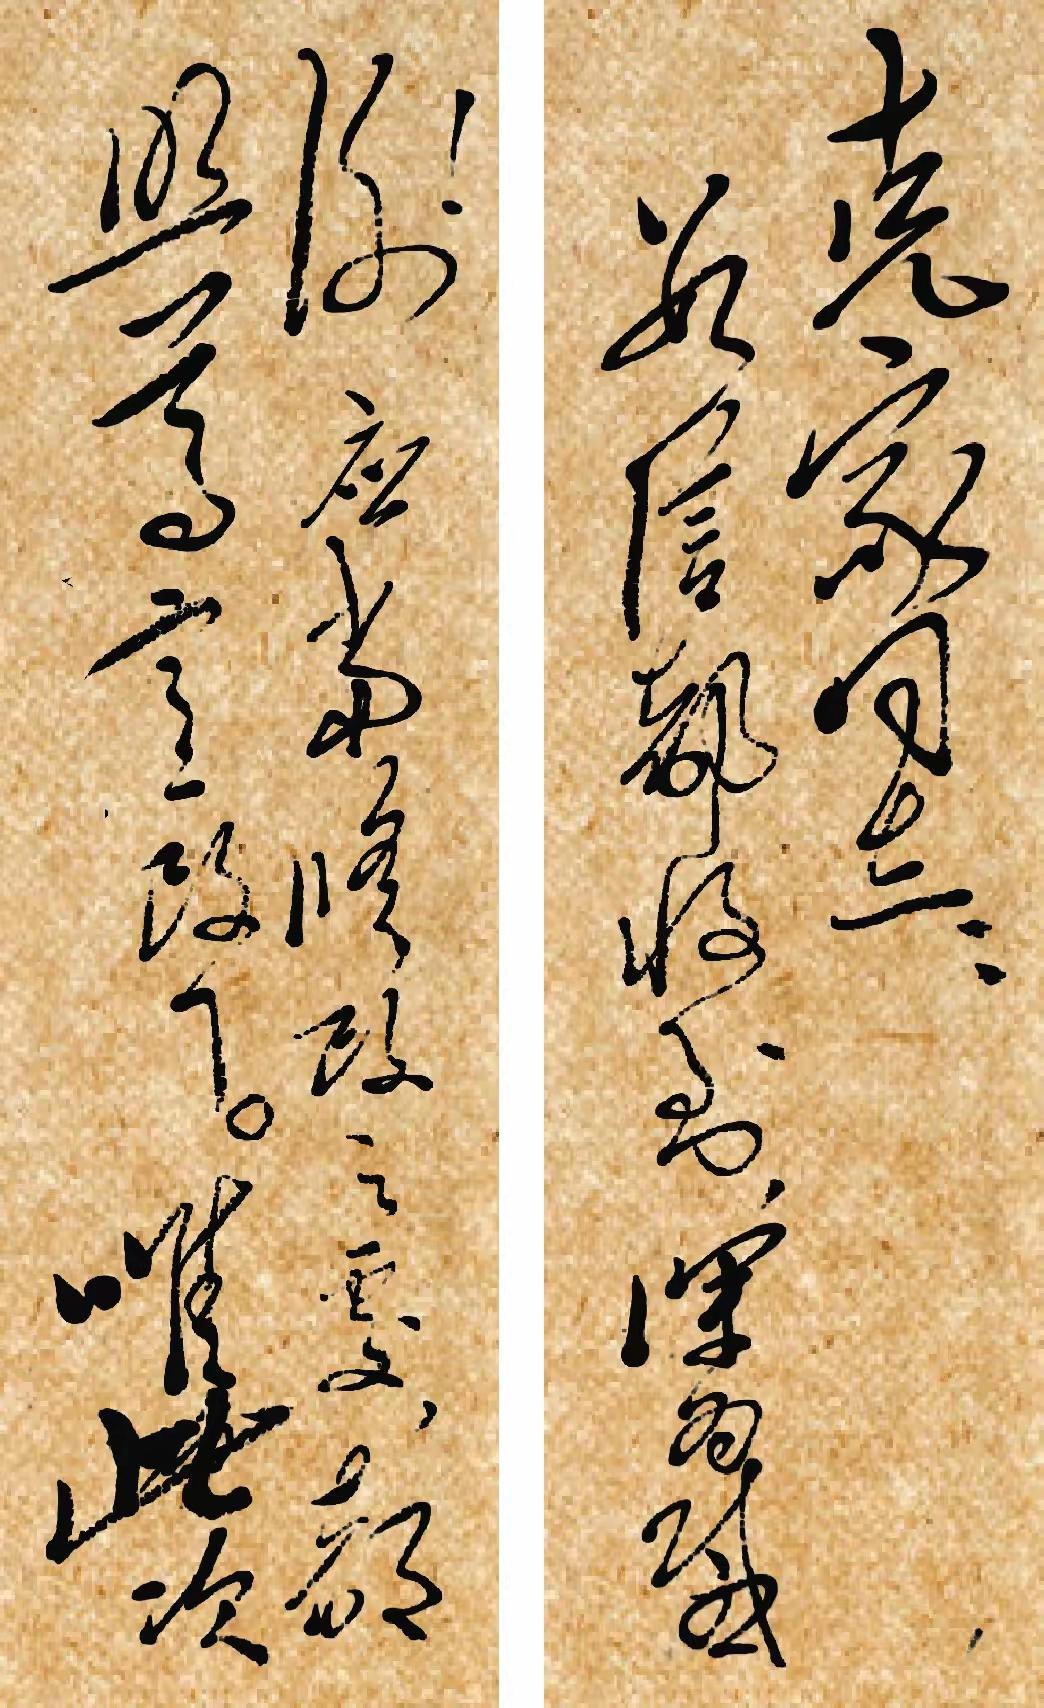 克家同志:
数信都收到,深为感
谢!应当修改之处,都
照尊意改了。唯此次